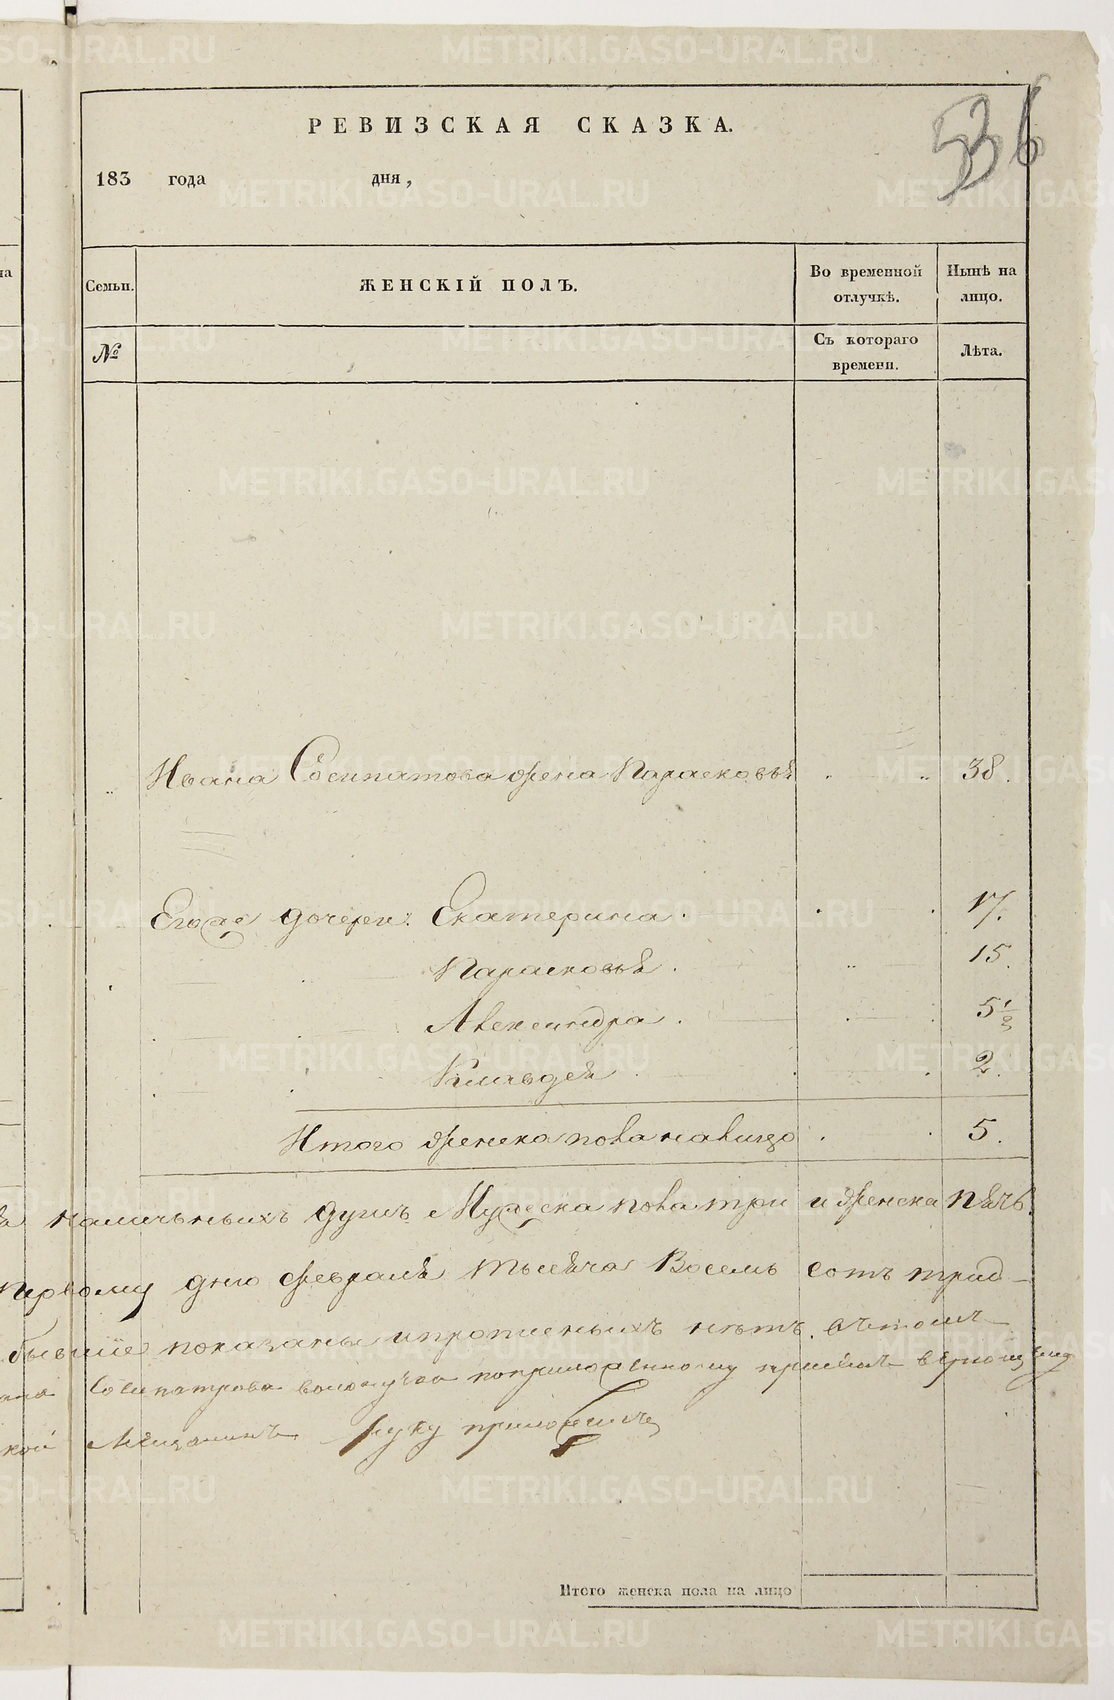 536
РЕВИЗСКАЯ СКАЗКА.
183 года дня,
Семьи. ЖЕНСКІЙ ПОЛЪ. Во временной отлучкѣ. Нынѣ на лицо.
№ Съ котораго времени. Лѣта.
Ивана Соснпатова жена Парасковья 38.
Егоже дочери: Екатерина. 17.
Парасковья. 15.
Александра. 5 1/2
Клавдея 2.
Итого женска пола на лицо 5.
наличныхъ душъ Мужеска пола три и женска пять
первому дню февраля тысяча Восемь сотъ трид-
бывшіе показаны и прописныхъ нѣтъ. въ томъ
кой мѣщанинъ руку приложилъ
Итого женска пола на лицо
METRIKI.GASO-URAL.RU